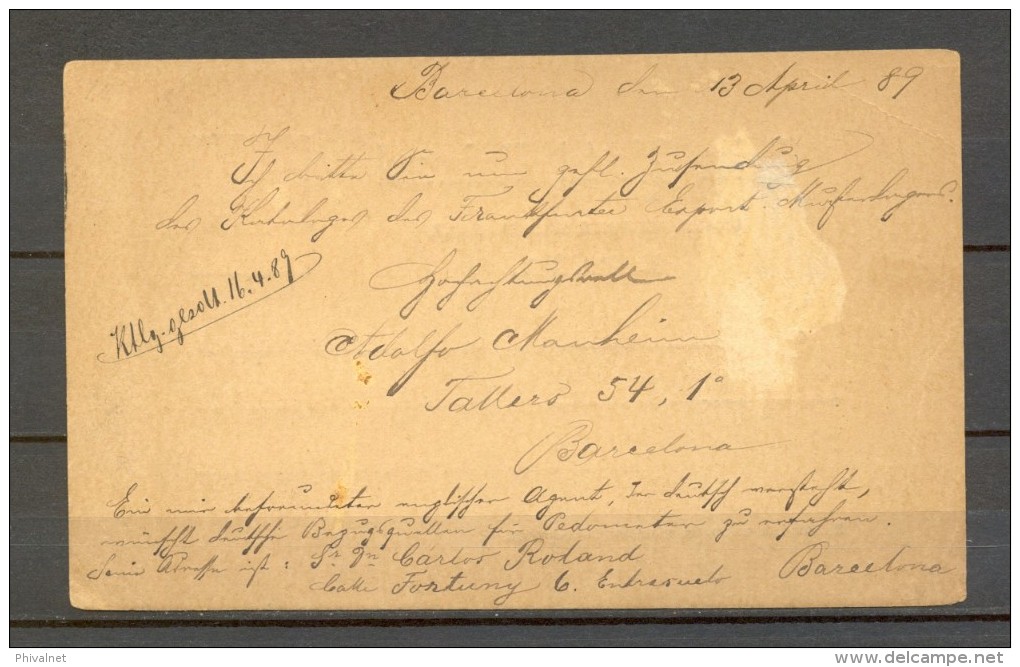 Barcelona den 13 April 89
Ich bitte Sie um gefl. Zusendung
des Kataloges des Frankfurter Export-Musterlagers.
Hochachtungsvoll
Adolfo Manheim
Tallers 54, 1º
Barcelona
Ktlg. gesdt. 16.4.89
Ein mir befreundeter englischer Agent, der deutsch versteht,
wünscht deutsche Bezugsquellen für Pedometer zu erfahren.
Seine Adresse ist: Sr. Dn Carlos Roland
Calle Fortuny 6. Entresuelo Barcelona
Phivalnet
www.delcampe.net